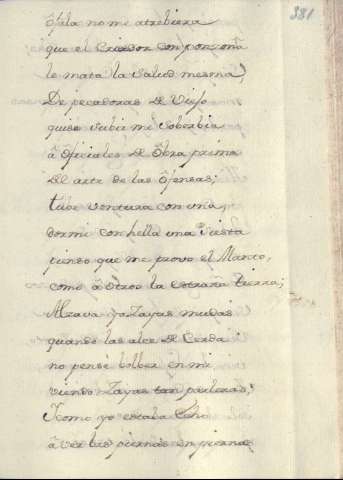 381
ôfala no me atrebiera
que el Criador con ponsoña
le mata la salud mesma,
De pecadoras de Viejo
quiso subir mi soberbia
â oficiales de Obra prima
del arte de las Ofensas;
tube ventura con vna
dormi con hella vna siesta
pienso que me provo el Manto,
como â otros la estraña tierra;
Alzava yo sayas mudas
quando las alce de Cerda
no pensè bolber en mi
viendo sayas tan parleras;
Icomo yo estaba hecho
â ver las piernas en piernas